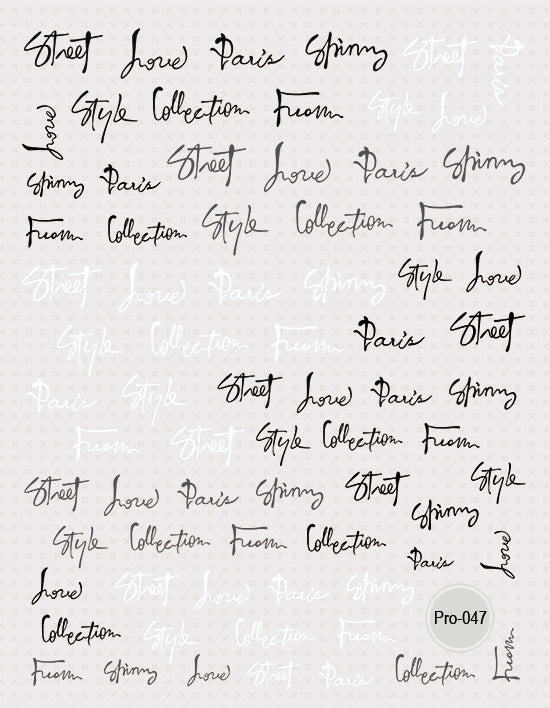 Street Love Paris Spinny Street Paris
Love Style Collection From Style Love
Spinny Paris Street Love Paris Spinny
From Collection Style Collection From
Street Love Paris Spinny Style Love
Style Collection From Paris Street
Paris Style Street Love Paris Spinny
From Street Style Collection From
Street Love Paris Spinny Street Spinny Style
Style Collection From Collection Paris Love
Love Street Love Paris Spinny
Collection Style Collection From Pro-047
From Spinny Love Street Paris Collection From